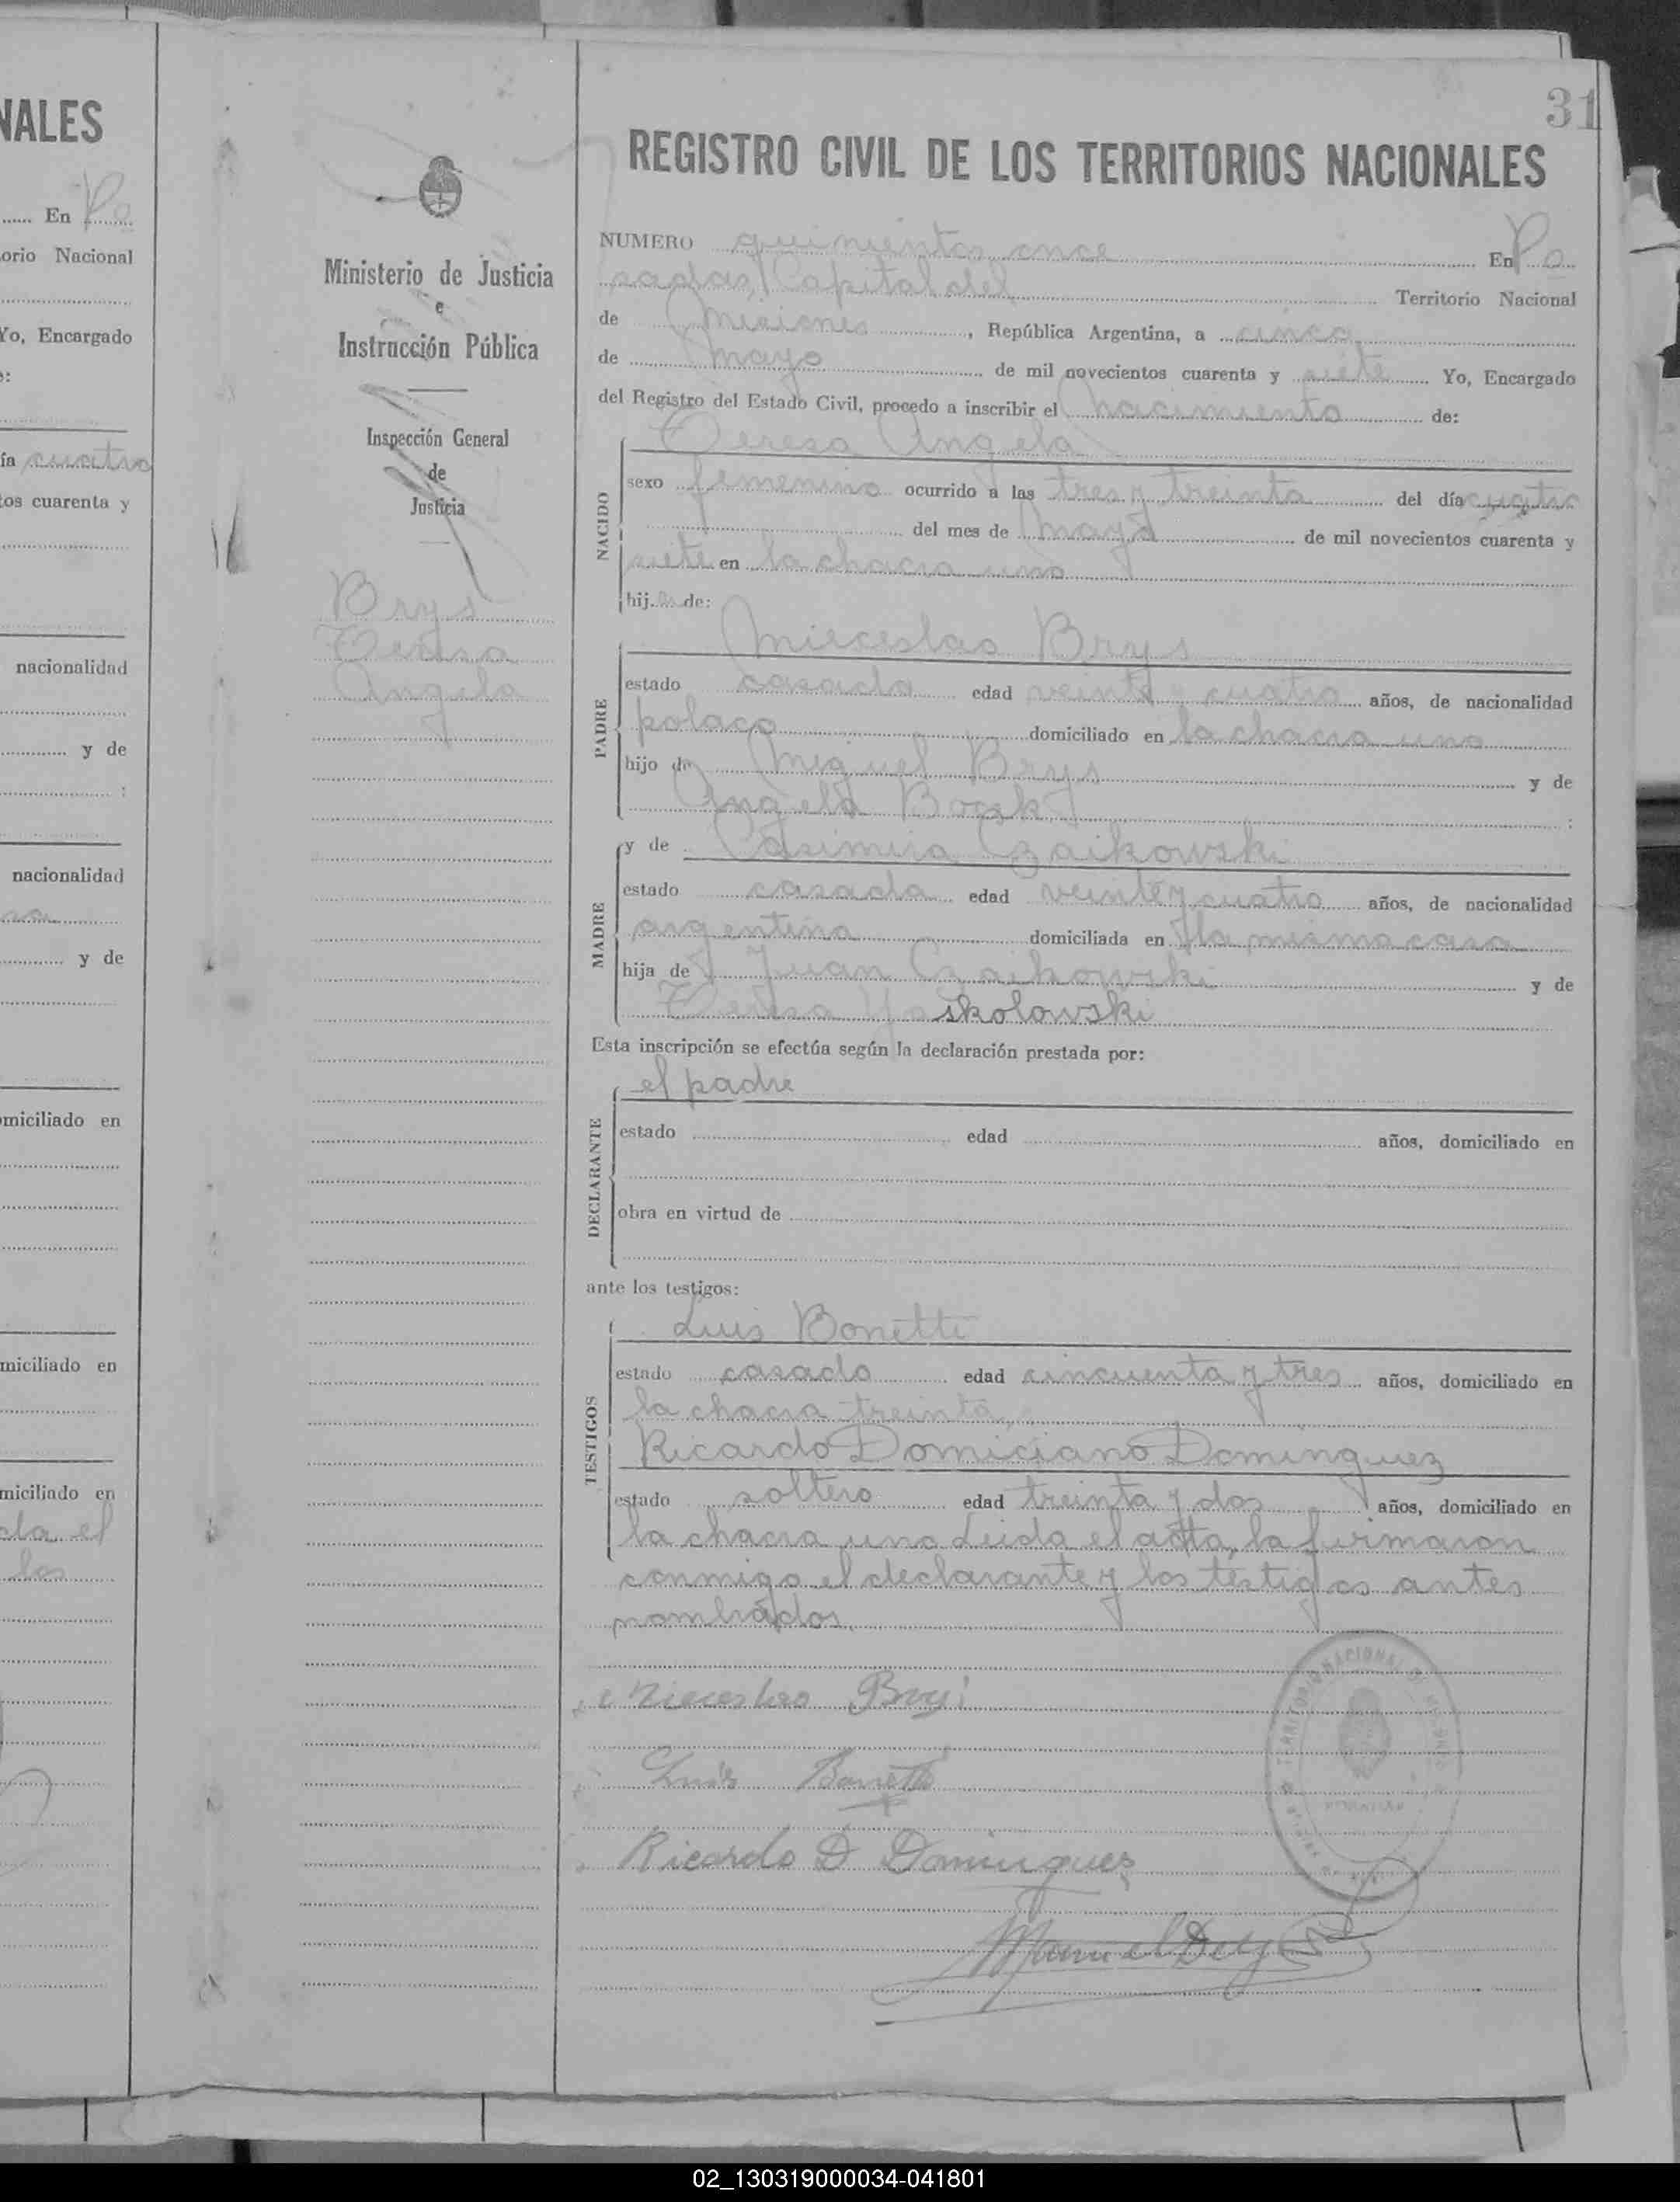 NALES
En Po
orio Nacional
Yo, Encargado
ía cuatro
tos cuarenta y
nacionalidad
y de
nacionalidad
y de
omiciliado en
miciliado en
miciliado en
el
los
Ministerio de Justicia
e
Instrucción Pública
Inspección General
de
Justicia
Brys
Teresa
Angela
31
REGISTRO CIVIL DE LOS TERRITORIOS NACIONALES
NUMERO quinientos once En Po
sadas, Capital del Territorio Nacional
de Misiones, República Argentina, a cinco
de mayo de mil novecientos cuarenta y siete Yo, Encargado
del Registro del Estado Civil, procedo a inscribir el nacimiento de:
NACIDO
Teresa Angela
sexo femenino ocurrido a las tres y treinta del día cuatro
del mes de mayo de mil novecientos cuarenta y
siete en la chacra uno
hija de:
PADRE
Mieceslao Brys
estado casado edad veinte y cuatro años, de nacionalidad
polaco domiciliado en la chacra uno
hijo de Miguel Brys y de
Angela :
MADRE
y de Casimira Czaikowski
estado casada edad veinte y cuatro años, de nacionalidad
argentina domiciliada en la misma casa
hija de Juan Czaikowski y de
Teresa Yaskolowski
Esta inscripción se efectúa según la declaración prestada por:
DECLARANTE
el padre
estado edad años, domiciliado en
obra en virtud de
ante los testigos:
TESTIGOS
Luis Bonetti
estado casado edad cincuenta y tres años, domiciliado en
la chacra treinta,
Ricardo Domiciano Dominguez
estado soltero edad treinta y dos años, domiciliado en
la chacra uno Leida el acta, la firmaron
conmigo el declarante y los testigos antes
nombrados.
Mieceslao Brys
Luis Bonetti
Ricardo D Domingues
Manuel
02_130319000034-041801